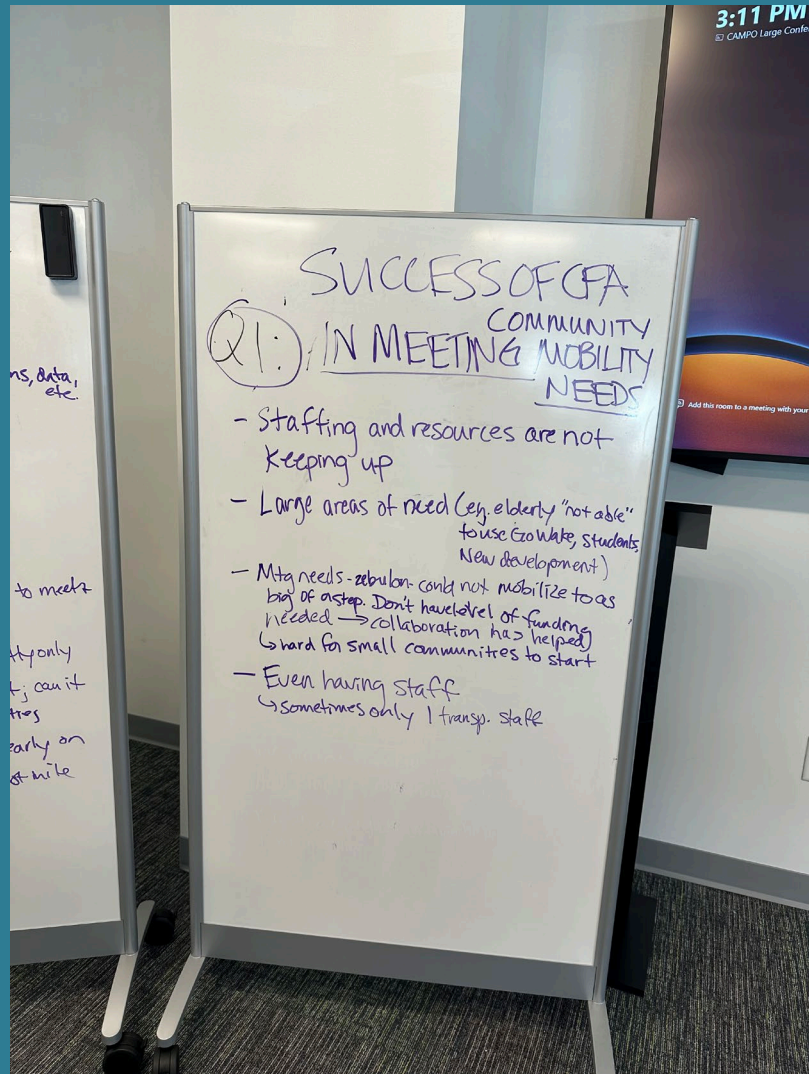 3:11 PM
CAMPO Large Confe
Add this room to a meeting with your
ns, data,
etc.
to meet
only
t; can it
early on
mile
SUCCESS OF CFA
Q1: IN MEETING COMMUNITY
MOBILITY
NEEDS
- Staffing and resources are not
keeping up
- Large areas of need (eg. elderly "not able"
to use GoWake, students,
New development)
- Mtg needs - zebulon - could not mobilize to as
big of a step. Don't have level of funding
needed → collaboration has helped
↳ hard for small communities to start
- Even having staff
↳ sometimes only 1 transp. staff